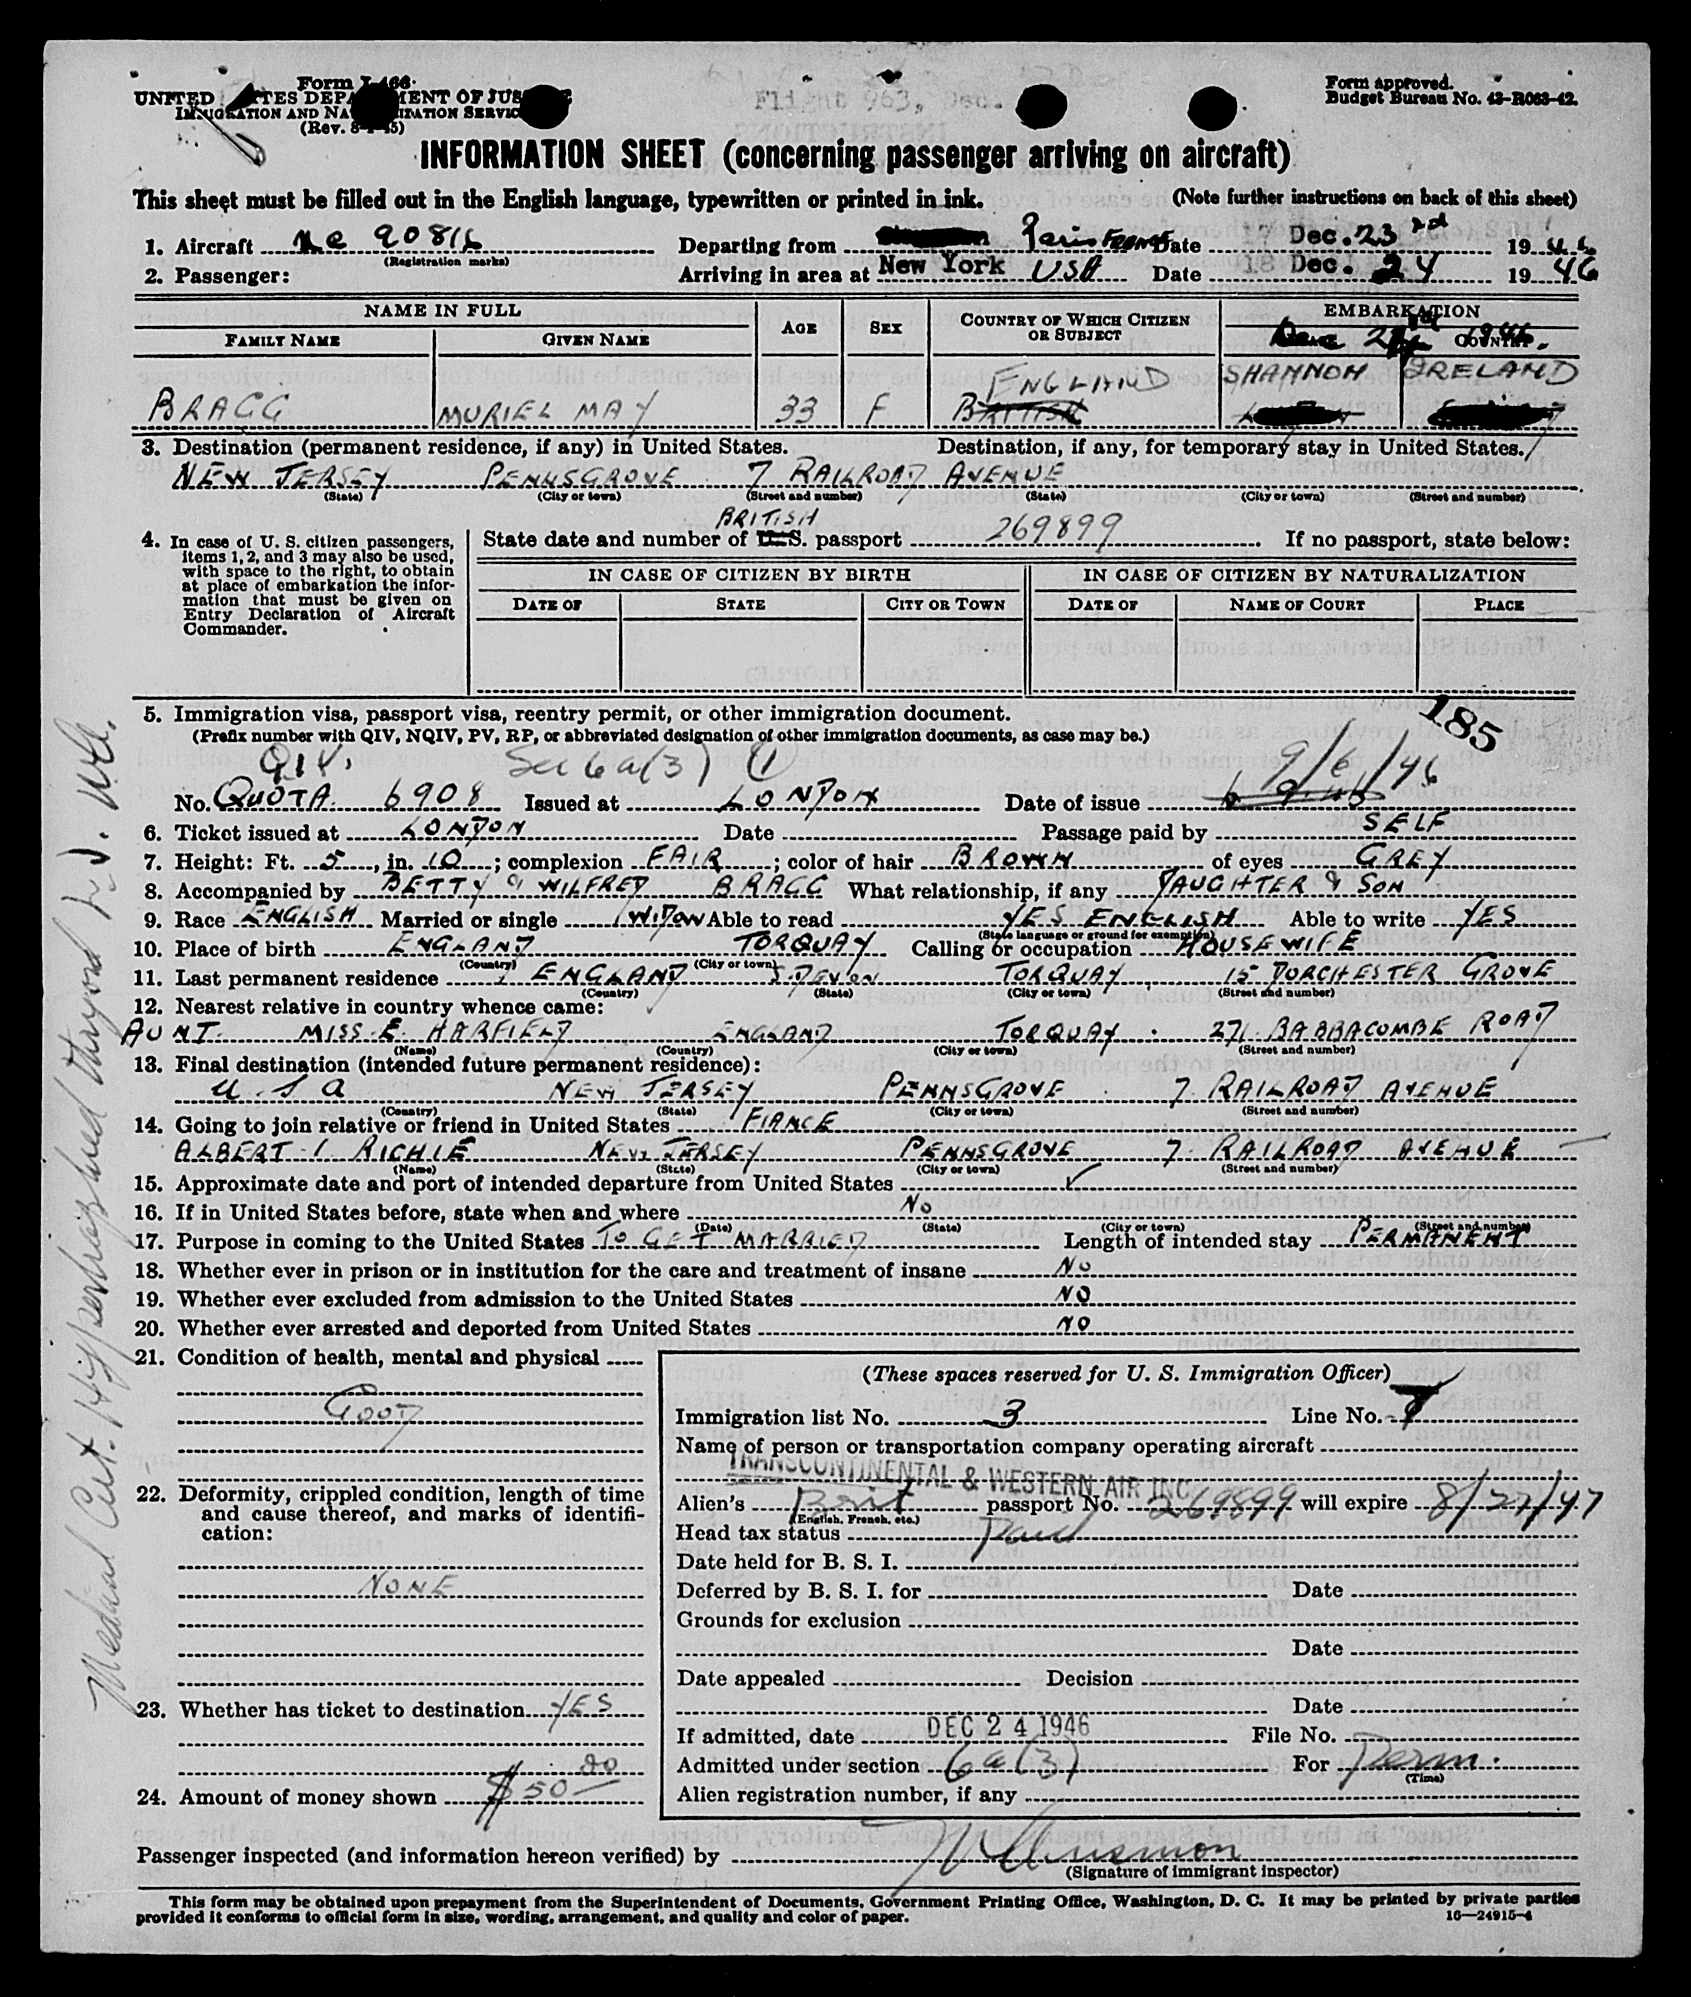 Form I-466
UNITED STATES DEPARTMENT OF JUSTICE
IMMIGRATION AND NATURALIZATION SERVICE
(Rev. 8-1-45)
Flight 963, Dec.
Form approved.
Budget Bureau No. 43-R063-42.
INFORMATION SHEET (concerning passenger arriving on aircraft)
This sheet must be filled out in the English language, typewritten or printed in ink. (Note further instructions on back of this sheet)
1. Aircraft NC 90816 (Registration marks) Departing from Paris FRANCE Date Dec. 23rd 1946
2. Passenger: Arriving in area at New York USA Date Dec. 24 1946
NAME IN FULL AGE SEX COUNTRY OF WHICH CITIZEN OR SUBJECT EMBARKATION
FAMILY NAME GIVEN NAME COUNTRY
ENGLAND SHANNON IRELAND
BRAGG MURIEL MAY 33 F BRITISH
3. Destination (permanent residence, if any) in United States. Destination, if any, for temporary stay in United States.
NEW JERSEY PENNSGROVE 7 RAILROAD AVENUE
(State) (City or town) (Street and number) (State) (City or town) (Street and number)
BRITISH
4. In case of U. S. citizen passengers, items 1, 2, and 3 may also be used, with space to the right, to obtain at place of embarkation the information that must be given on Entry Declaration of Aircraft Commander.
State date and number of U. S. passport 269899 If no passport, state below:
IN CASE OF CITIZEN BY BIRTH IN CASE OF CITIZEN BY NATURALIZATION
DATE OF STATE CITY OR TOWN DATE OF NAME OF COURT PLACE
185
5. Immigration visa, passport visa, reentry permit, or other immigration document.
(Prefix number with QIV, NQIV, PV, RP, or abbreviated designation of other immigration documents, as case may be.)
QIV. Sec 6a(3) (1) 9/6/46
No. QUOTA 6908 Issued at LONDON Date of issue
6. Ticket issued at LONDON Date Passage paid by SELF
7. Height: Ft. 5, in. 10; complexion FAIR; color of hair BROWN of eyes GREY
8. Accompanied by BETTY & WILFRED BRAGG What relationship, if any DAUGHTER & SON
9. Race ENGLISH Married or single WIDOW Able to read YES ENGLISH Able to write YES
(State language or ground for exemption)
10. Place of birth ENGLAND TORQUAY Calling or occupation HOUSEWIFE
(Country) (City or town)
11. Last permanent residence ENGLAND S. DEVON TORQUAY 15 DORCHESTER GROVE
(Country) (State) (City or town) (Street and number)
12. Nearest relative in country whence came:
AUNT. MISS E. HARFIELD ENGLAND TORQUAY. 271 BABBACOMBE ROAD
(Name) (Country) (City or town) (Street and number)
13. Final destination (intended future permanent residence):
U.S.A NEW JERSEY PENNSGROVE 7 RAILROAD AVENUE
(Country) (State) (City or town) (Street and number)
14. Going to join relative or friend in United States FIANCE
ALBERT I. RICHIE NEW JERSEY PENNSGROVE 7 RAILROAD AVENUE
(Name) (State) (City or town) (Street and number)
15. Approximate date and port of intended departure from United States
16. If in United States before, state when and where No
(Date) (State) (City or town) (Street and number)
17. Purpose in coming to the United States TO GET MARRIED Length of intended stay PERMANENT
18. Whether ever in prison or in institution for the care and treatment of insane No
19. Whether ever excluded from admission to the United States NO
20. Whether ever arrested and deported from United States NO
21. Condition of health, mental and physical
GOOD
22. Deformity, crippled condition, length of time and cause thereof, and marks of identification:
NONE
23. Whether has ticket to destination YES
24. Amount of money shown $50 00
(These spaces reserved for U. S. Immigration Officer)
Immigration list No. 3 Line No. 7
Name of person or transportation company operating aircraft
TRANSCONTINENTAL & WESTERN AIR INC
Alien's Brit passport No. 269899 will expire 8/27/47
(English, French, etc.)
Head tax status Paid
Date held for B. S. I.
Deferred by B. S. I. for Date
Grounds for exclusion
Date
Date appealed Decision
Date
If admitted, date DEC 24 1946 File No.
Admitted under section 6a(3) For Perm.
(Time)
Alien registration number, if any
Passenger inspected (and information hereon verified) by
(Signature of immigrant inspector)
This form may be obtained upon prepayment from the Superintendent of Documents, Government Printing Office, Washington, D. C. It may be printed by private parties
provided it conforms to official form in size, wording, arrangement, and quality and color of paper. 16—24915-4
Medical Cert.